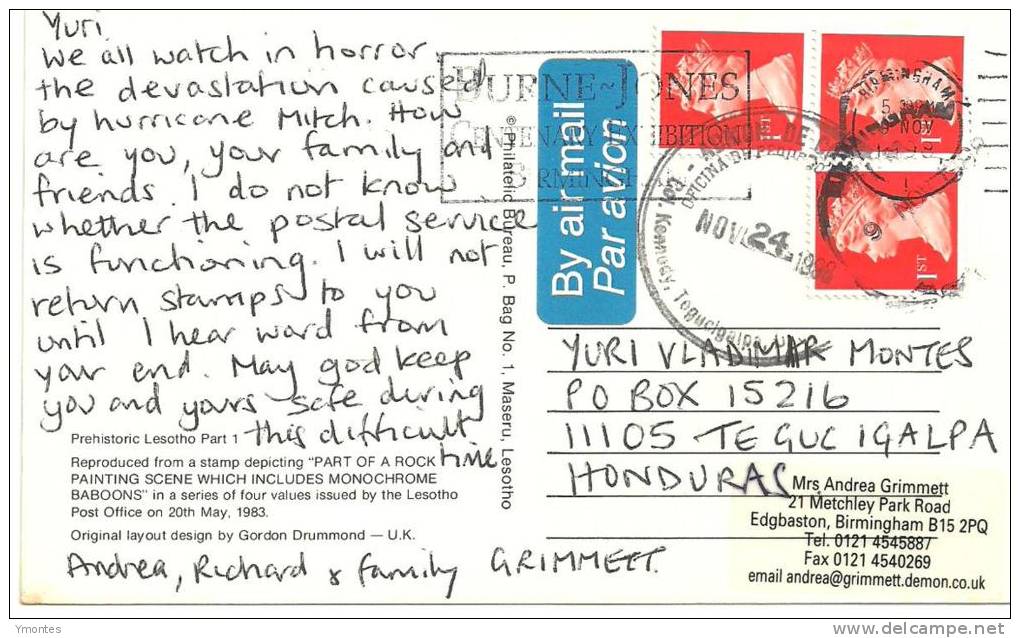 Yuri
We all watch in horror
the devastation caused
by hurricane Mitch. How
are you, your family and
friends. I do not know
whether the postal service
is functioning. I will not
return stamps to you
until I hear word from
your end. May god keep
you and yours safe during
this difficult
time
Prehistoric Lesotho Part 1
Reproduced from a stamp depicting "PART OF A ROCK
PAINTING SCENE WHICH INCLUDES MONOCHROME
BABOONS" in a series of four values issued by the Lesotho
Post Office on 20th May, 1983.
Original layout design by Gordon Drummond — U.K.
Andrea, Richard & family GRIMMETT.
© Philatelic Bureau, P. Bag No. 1, Maseru, Lesotho
BURNE~JONES
CENTENARY EXHIBITION
BIRMINGHAM
By air mail
Par avion
1ST
1ST
1ST
BIRMINGHAM
NOV
NOV 24 1998
Kennedy, Tegucigalpa
YURI VLADIMAR MONTES
PO BOX 15216
11105 TEGUCIGALPA
HONDURAS
Mrs Andrea Grimmett
21 Metchley Park Road
Edgbaston, Birmingham B15 2PQ
Tel. 0121 4545887
Fax 0121 4540269
email andrea@grimmett.demon.co.uk
Ymontes
delcampe.net